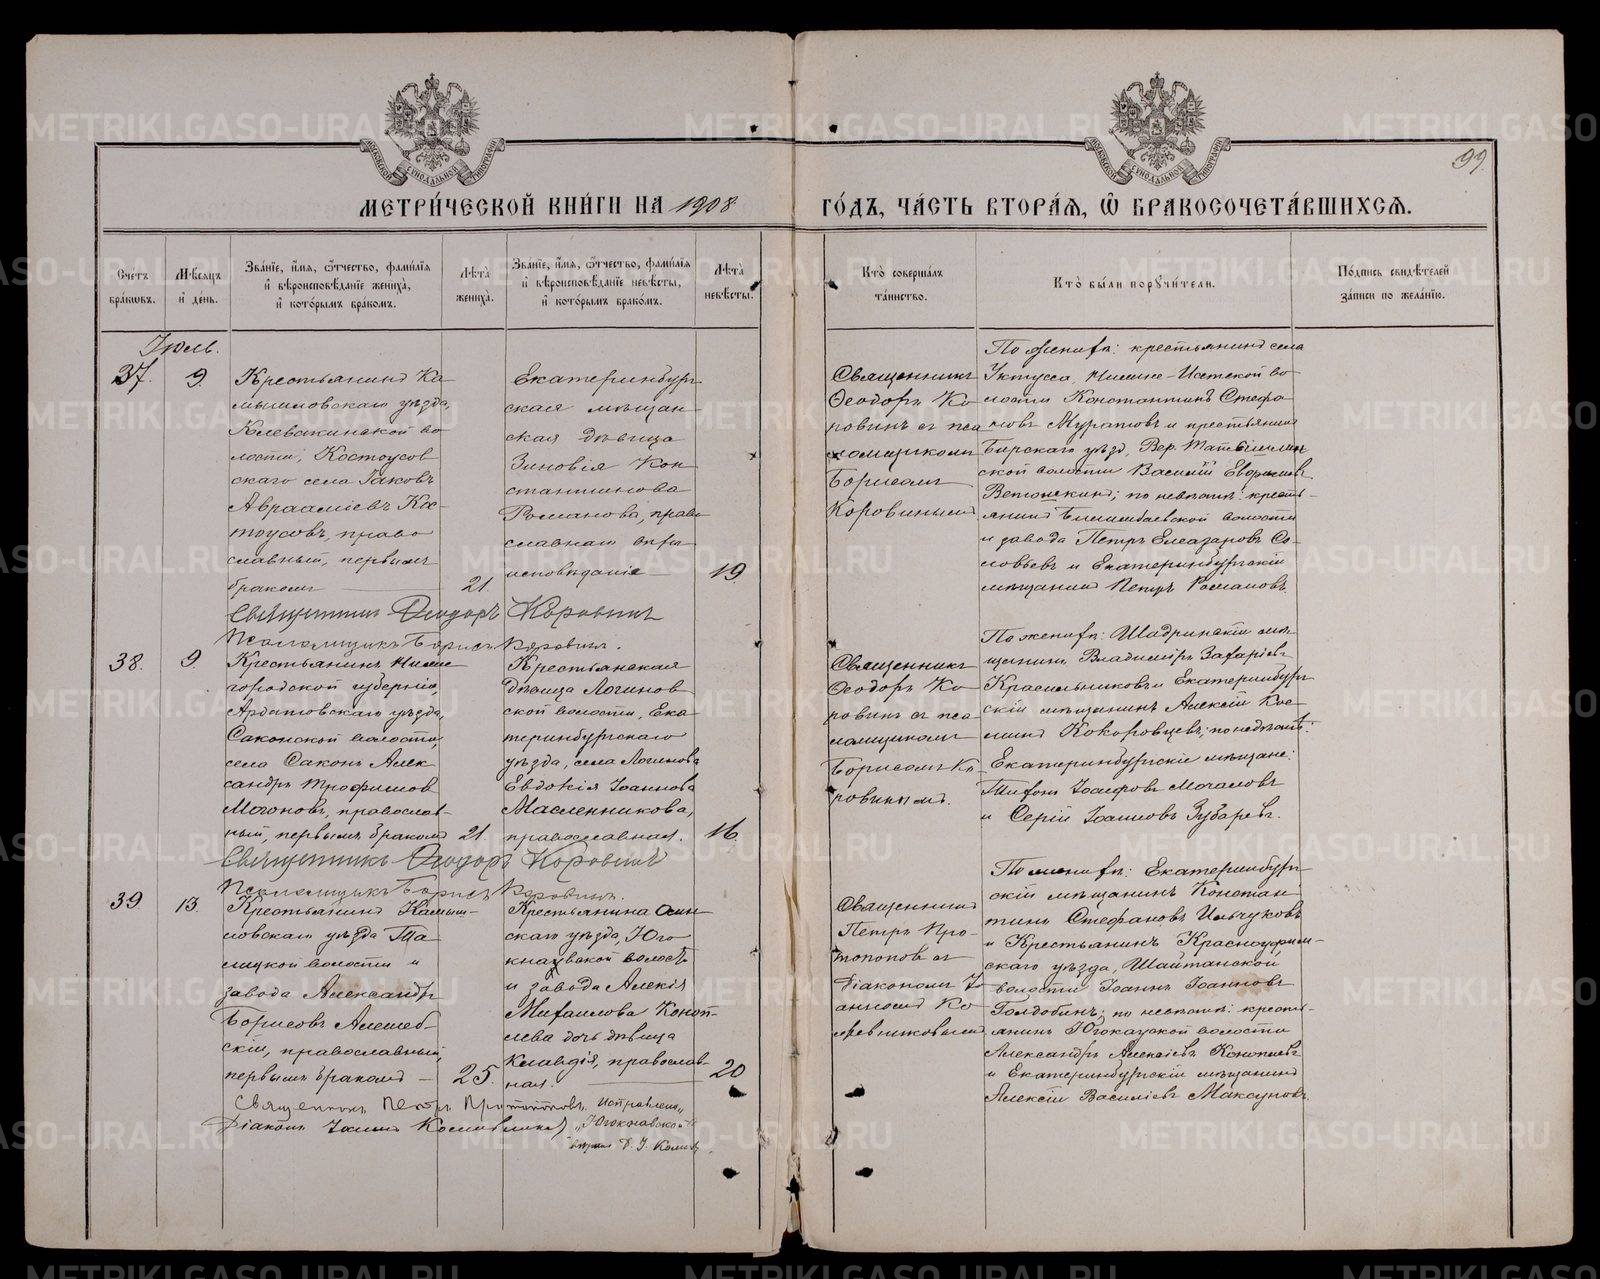 99
МЕТРИ́ЧЕСКОЙ КНИ́ГИ НА 1908 ГО́ДЪ, ЧА́СТЬ ВТОРА́Я, Ѿ БРАКОСОЧЕТА́ВШИХСЯ.
Счетъ браковъ.
Мѣсяцъ и день.
Званіе, имя, отчество, фамилія и вѣроисповѣданіе жениха, и которымъ бракомъ.
Лѣта жениха.
Званіе, имя, отчество, фамилія и вѣроисповѣданіе невѣсты, и которымъ бракомъ.
Лѣта невѣсты.
Кто совершалъ таинство.
Кто были поручители.
Подпись свидѣтелей записи по желанію.
Іюль.
37.
9.
Крестьянинъ Ка-
мышловскаго уѣзда,
Клевакинской во-
лости, Костоусов
скаго села Іаковъ
Авраамiевъ Кос-
тоусовъ, право
славный, первымъ
бракомъ
21.
Екатеринбург-
ская мѣщан-
ская дѣвица
Зиновія Кон
стантинова
Романова, право
славнаго вѣро
исповѣданія
19.
Священникъ
Ѳеодоръ Ко-
ровинъ съ пса
ломщикомъ
Борисомъ
Коровинымъ
По женихѣ: крестьянинъ села
Уктусса, Нижне-Исетской во-
лости Константинъ Стефа-
новъ Муратовъ и крестьянинъ
Бирскаго уѣзд, Вер.
ской волости Василій
Ветошкинъ; по невѣстѣ: кресть-
янинъ Билимбаевской волости
и завода Петръ Елеазаровъ Со-
ловьевъ и Екатеринбургскій
мѣщанинъ Петръ Романовъ.
Священникъ Ѳеодоръ Коровинъ
Псаломщикъ Борисъ Коровинъ.
38.
9.
Крестьянинъ Ниже
городской губерніи,
Ардатовскаго уѣзда,
Саконской волости,
села Саконъ Алек
сандръ Трофимов
Мочоновъ, православ-
ный, первымъ бракомъ
21.
Крестьянская
дѣвица Логинов
ской волости, Ека
теринбургскаго
уѣзда, села Логинова
Евдокія Іоаннова
Масленникова,
православная.
16.
Священникъ
Ѳеодоръ Ко-
ровинъ съ пса-
ломщикомъ
Борисомъ Ко-
ровинымъ.
По женихѣ: Шадринскій мѣ-
щанинъ Владиміръ Захаріевъ
Красильниковъ и Екатеринбург
скій мѣщанинъ Алексій Кос-
минъ Кокоровцевъ; по невѣстѣ:
Екатеринбургскіе мѣщане:
Тихонъ Іосифовъ Мочаловъ
и Сергій Іоанновъ Зубаревъ.
Священникъ Ѳеодоръ Коровинъ
Псаломщикъ Борисъ Коровинъ.
39
13.
Крестьянинъ Камыш-
ловскаго уѣзда Та-
лицкой волости и
завода Александръ
Борисовъ
скій, православный,
первымъ бракомъ
25.
Крестьянина Осин-
скаго уѣзда, Юго
кнаувской волости
и завода Алексія
Михаилова Коноп-
лева дочь дѣвица
Клавдія, православ-
ная.
20
Священникъ
Петръ Про-
топоповъ съ
діакономъ Іо
анномъ Ко-
По женихѣ: Екатеринбург
скій мѣщанинъ Констан
тинъ Стефановъ Ильчуковъ
и Крестьянинъ Красноуфим-
скаго уѣзда, Шайтанской
волости Іоаннъ Іоанновъ
Голдобинъ; по невѣстѣ: кресть-
янинъ волости
Александръ Алексіевъ Коноплевъ
и Екатеринбургскій мѣщанинъ
Алексій Василіевъ Максуновъ.
Священникъ Петръ Протопоповъ.
Діаконъ Іоаннъ